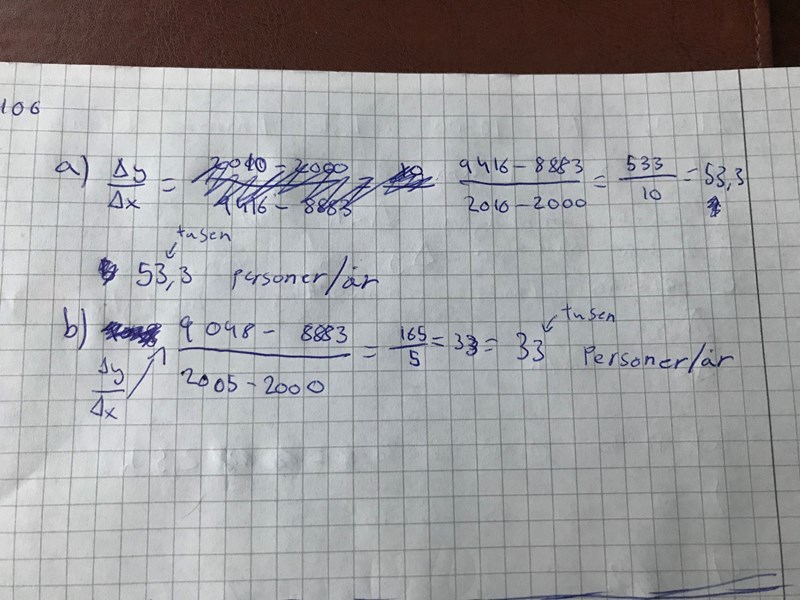 106
a) Δy/Δx = (9416 - 8883)/(2010 - 2000) = 533/10 = 53,3
tusen
53,3 personer/år
b) Δy/Δx (9048 - 8883)/(2005 - 2000) = 165/5 = 33 = 33 personer/år
tusen